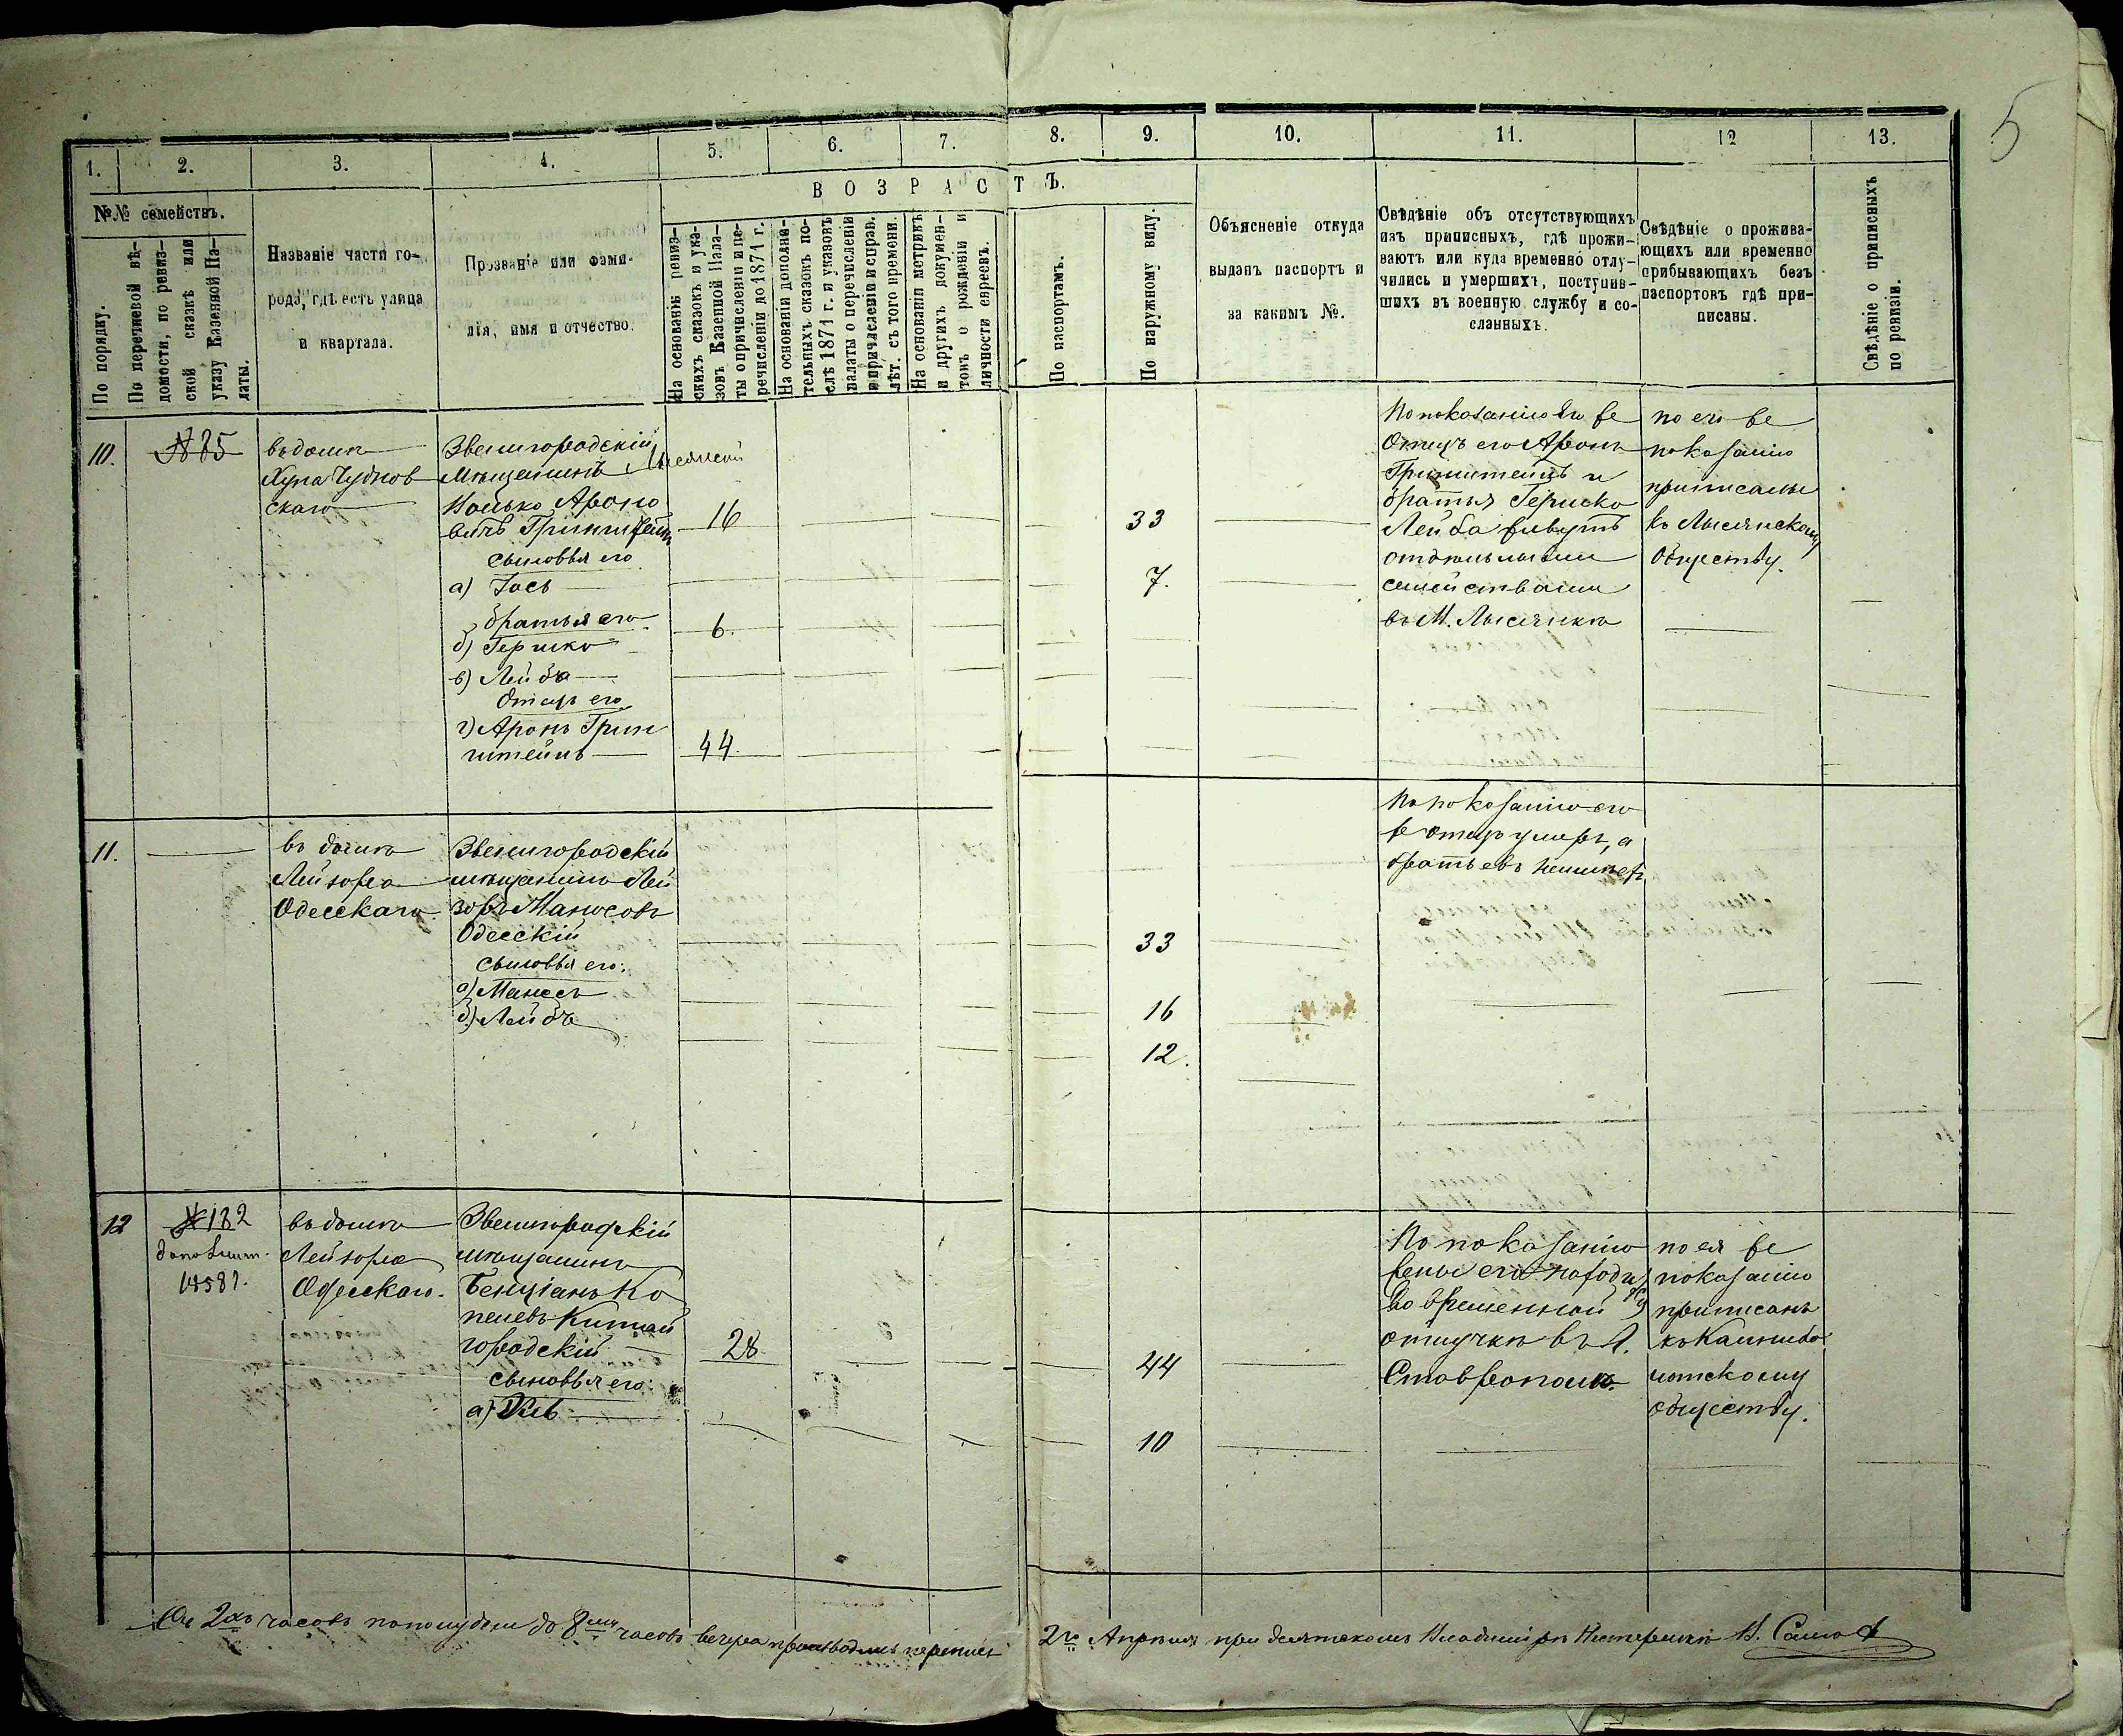 5
1. 2. 3. 4. 5. 6. 7. 8. 9. 10. 11. 12 13.
№№ семействъ.
По порядку.
По перечневой вѣ-
домости, по ревиз-
ской сказкѣ или
указу Казенной Па-
латы.
Названіе части го-
рода, гдѣ есть улица
и квартала.
Прозваніе или фами-
лія, имя и отчество.
ВОЗРАСТЪ.
На основаніи ревиз-
скихъ сказокъ и ука-
зовъ Казенной Пала-
ты о причисленіи и пе-
речисленіи до 1871 г.
На основаніи дополни-
тельныхъ сказокъ по-
слѣ 1871 г. и указовъ
палаты о перечисленіи
и причисленіи и справ.
лѣт. съ того времени.
На основаніи метрикъ
и других докумен-
товъ о рожденіи и
личности евреевъ.
По паспортамъ.
По наружному виду.
Объясненіе откуда
выданъ паспортъ и
за какимъ №.
Свѣдѣніе объ отсутствующихъ
изъ приписныхъ, гдѣ прожи-
ваютъ или куда временно отлу-
чились и умершихъ, поступив-
шихъ въ военную службу и со-
сланныхъ.
Свѣдѣніе о прожива-
ющихъ или временно
прибывающихъ безъ
паспортовъ гдѣ при-
писаны.
Свѣдѣніе о приписныхъ
по ревизіи.
10.
№ 85
въ домѣ
Чуднов
скаго
Звенигородскій
Мѣщанинъ
Ароно
вичъ Гринштейнъ
сыновья его
а) Іось
братья его
б) Гершко
в) Лейба
Отецъ его
г) Аронъ Грин
штейнъ
16
6.
44.
33
7.
По показанію его же
Отецъ его Аронъ
Гринштейнъ и
братья Гершко
Лейба живутъ
отдѣльными
семействами
въ М. Лысянкѣ
по его же
показанію
приписаны
къ Лысянскому
Обществу.
11.
въ домѣ
Лейзора
Одесскаго.
Звенигородскій
мѣщанинъ Лей
зоръ Маносовъ
Одесскій
сыновья его:
а) Манесъ
б) Лейба
33
16
12.
По показанію его
же отецъ умеръ, а
братьевъ неимѣетъ
12
№ 182
въ домѣ
Лейзора
Одесскаго.
Звенигородскій
мѣщанинъ
Бенціанъ Ко
пелевъ Китай
городскій
сыновья его:
а)
28
44
10
По показанію
жены его находит
ся
во временной
отлучкѣ въ г.
Ставрополѣ.
по ея же
показанію
приписанъ
къ Калниболотскому
обществу.
2хъ часовъ пополудни до 8ми часовъ вечера производилъ перепись
2го Апрѣля при десятскомъ Владимірѣ Нестеренкѣ